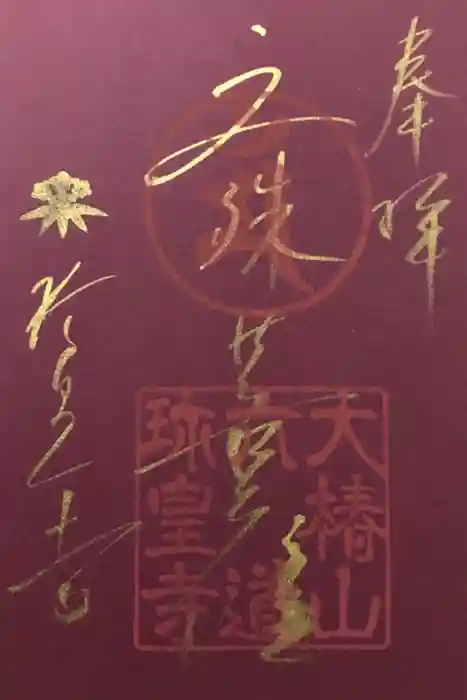 奉拝
文殊菩薩
珍皇寺
大椿山
六道
珎皇寺